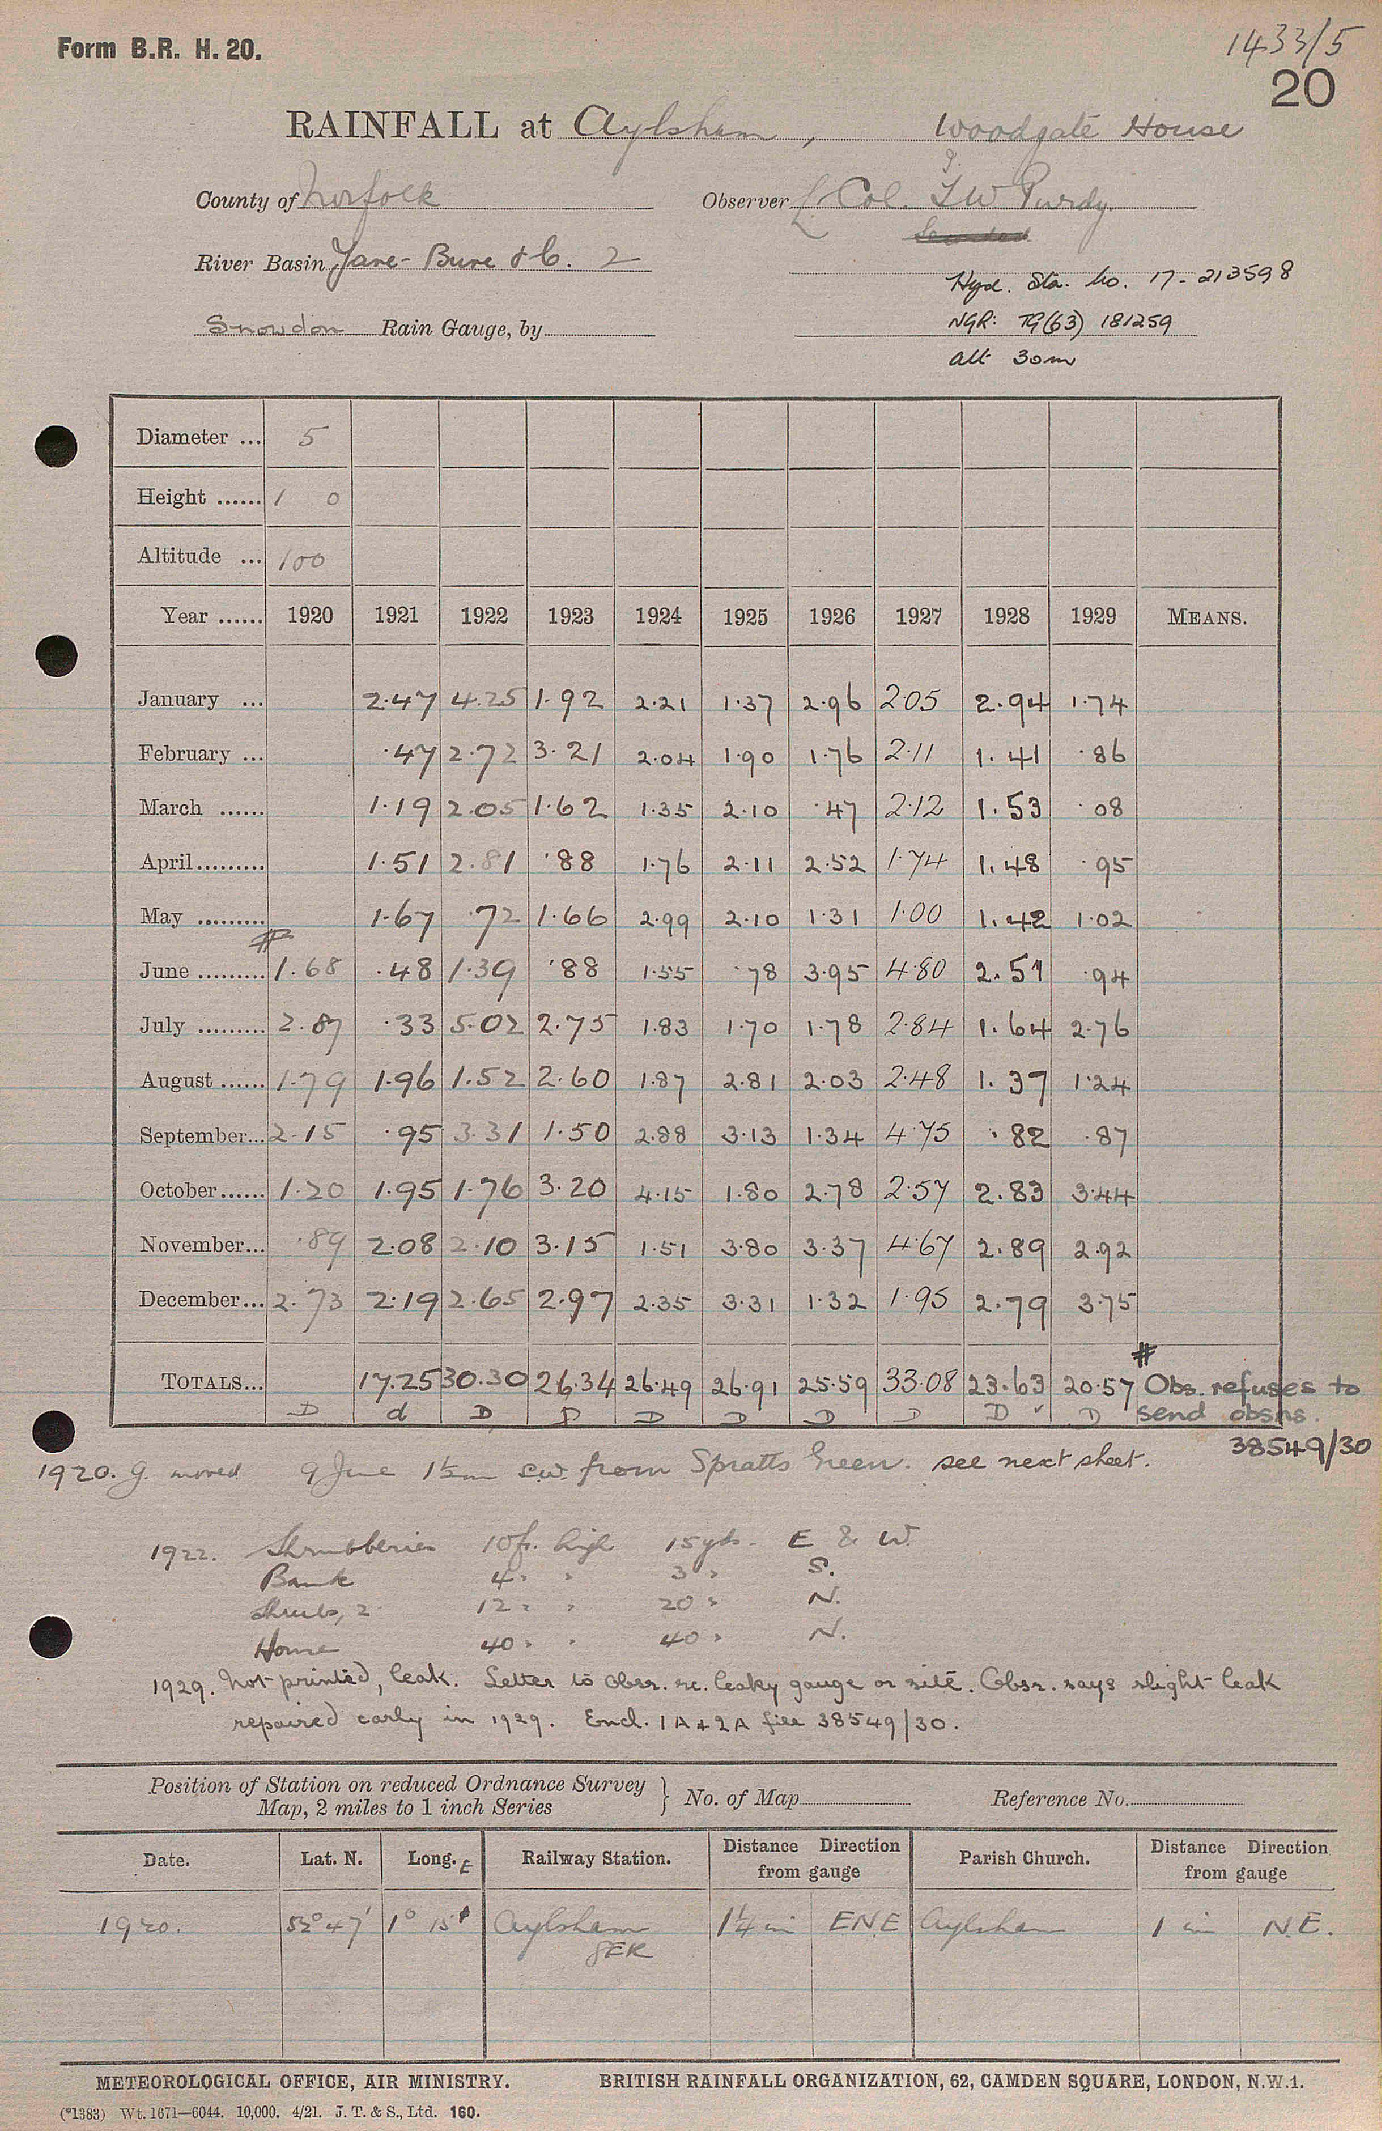 Form B.R. H. 20.
1433/5
20
RAINFALL at Aylsham, Woodgate House
County of Norfolk Observer Lt Col. T W Purdy.
River Basin Yare- Bure &c. 2
Hyd. Sta. No. 17-213598
Snowdon Rain Gauge, by
NGR: TG(63) 181259
alt 30m
Diameter ... 5
Height ...... 1 0
Altitude ... 100
Year ...... 1920 1921 1922 1923 1924 1925 1926 1927 1928 1929 MEANS.
January ... 2.47 4.25 1.92 2.21 1.37 2.96 2.05 2.94 1.74
February ... .47 2.72 3.21 2.04 1.90 1.76 2.11 1.41 .86
March ...... 1.19 2.05 1.62 1.35 2.10 .47 2.12 1.53 .08
April......... 1.51 2.81 .88 1.76 2.11 2.52 1.74 1.48 .95
May ......... 1.67 .72 1.66 2.99 2.10 1.31 1.00 1.42 1.02
June ......... 1.68 .48 1.39 .88 1.55 .78 3.95 4.80 2.51 .94
July ......... 2.87 .33 5.02 2.75 1.83 1.70 1.78 2.84 1.64 2.76
August ...... 1.79 1.96 1.52 2.60 1.87 2.81 2.03 2.48 1.37 1.24
September... 2.15 .95 3.31 1.50 2.88 3.13 1.34 4.75 .82 .87
October...... 1.20 1.95 1.76 3.20 4.15 1.80 2.78 2.57 2.83 3.44
November... .89 2.08 2.10 3.15 1.51 3.80 3.37 4.67 2.89 2.92
December... 2.73 2.19 2.65 2.97 2.35 3.31 1.32 1.95 2.79 3.75
TOTALS... 17.25 30.30 26.34 26.49 26.91 25.59 33.08 23.63 20.57 # Obs. refuses to
D d D D D D D D D D send obsns.
38549/30
1920. g. moved 9 June 1½m SW from Spratts Green. see next sheet.
1922. Shrubberies 10ft. high 15yds. E & W.
Bank 4 " " 3 " S.
Shrubs, 2 12 " " 20 " N.
House 40 " " 40 " N.
1929. Not printed, leak. Letter to obsr. re. leaky gauge or site. Obsr. says slight leak
repaired early in 1929. Encl. 1A+2A file 38549/30.
Position of Station on reduced Ordnance Survey
Map, 2 miles to 1 inch Series } No. of Map Reference No.
Date. Lat. N. Long. E Railway Station. Distance Direction from gauge Parish Church. Distance Direction from gauge
1920. 52°47' 1°15' Aylsham GER 1¼ m ENE Aylsham 1 m N.E.
METEOROLOGICAL OFFICE, AIR MINISTRY. BRITISH RAINFALL ORGANIZATION, 62, CAMDEN SQUARE, LONDON, N.W.1.
(*1383) Wt. 1671—6044. 10,000. 4/21. J. T. & S., Ltd. 160.